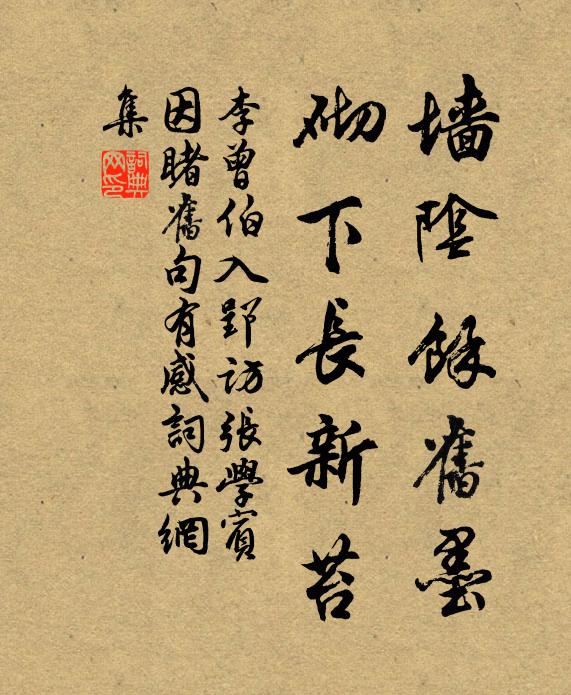 墙陰餘舊墨
砌下長新苔
李曾伯入郢訪張學賓
因睹舊句有感詞典網
集
詞典网印